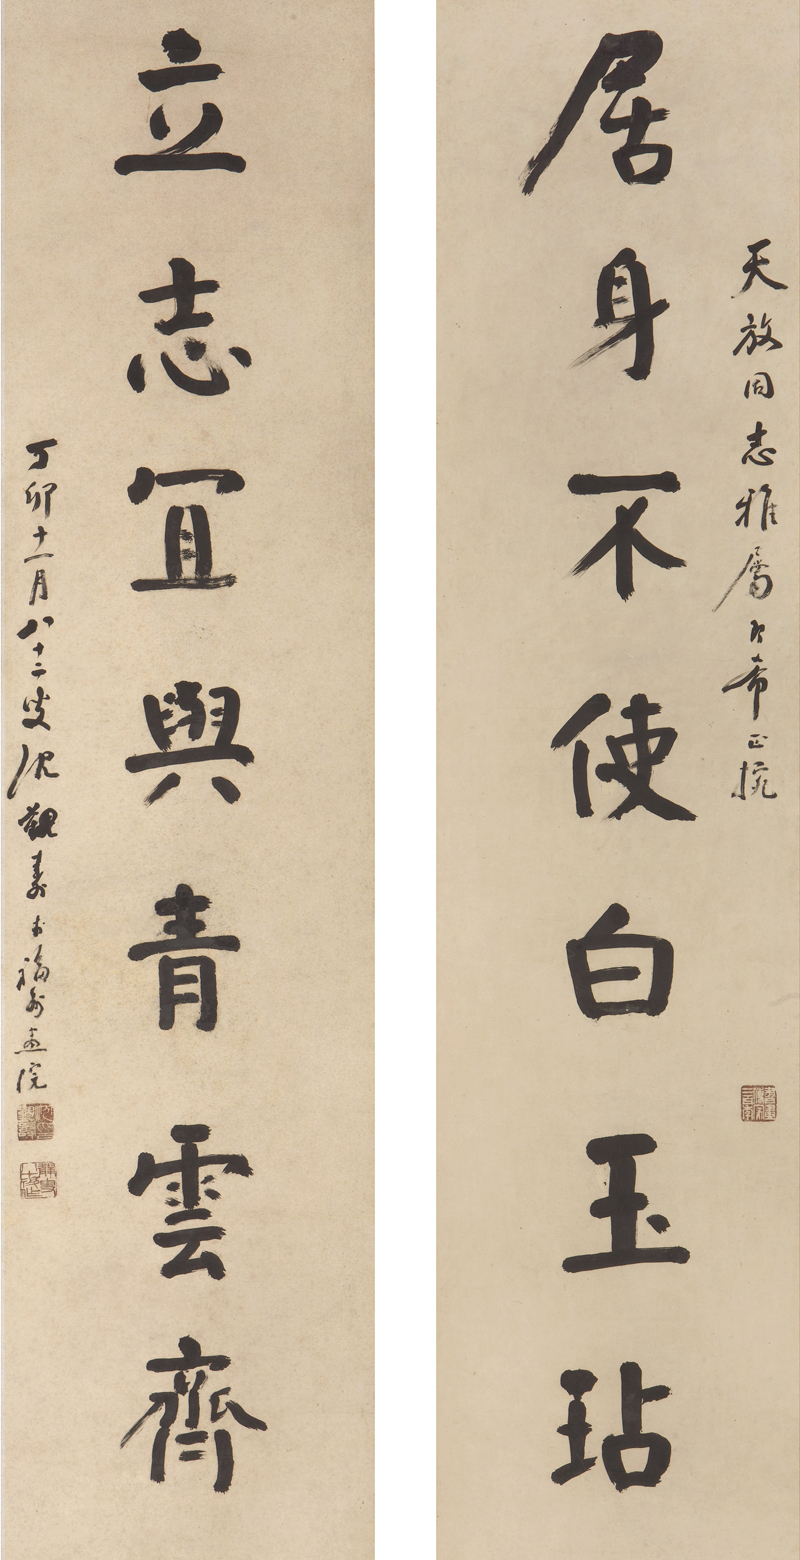 天放同志雅属即希正腕
居身不使白玉玷
立志宜與青雲齊
丁卯十一月八十二叟沈覲壽书於福州画院